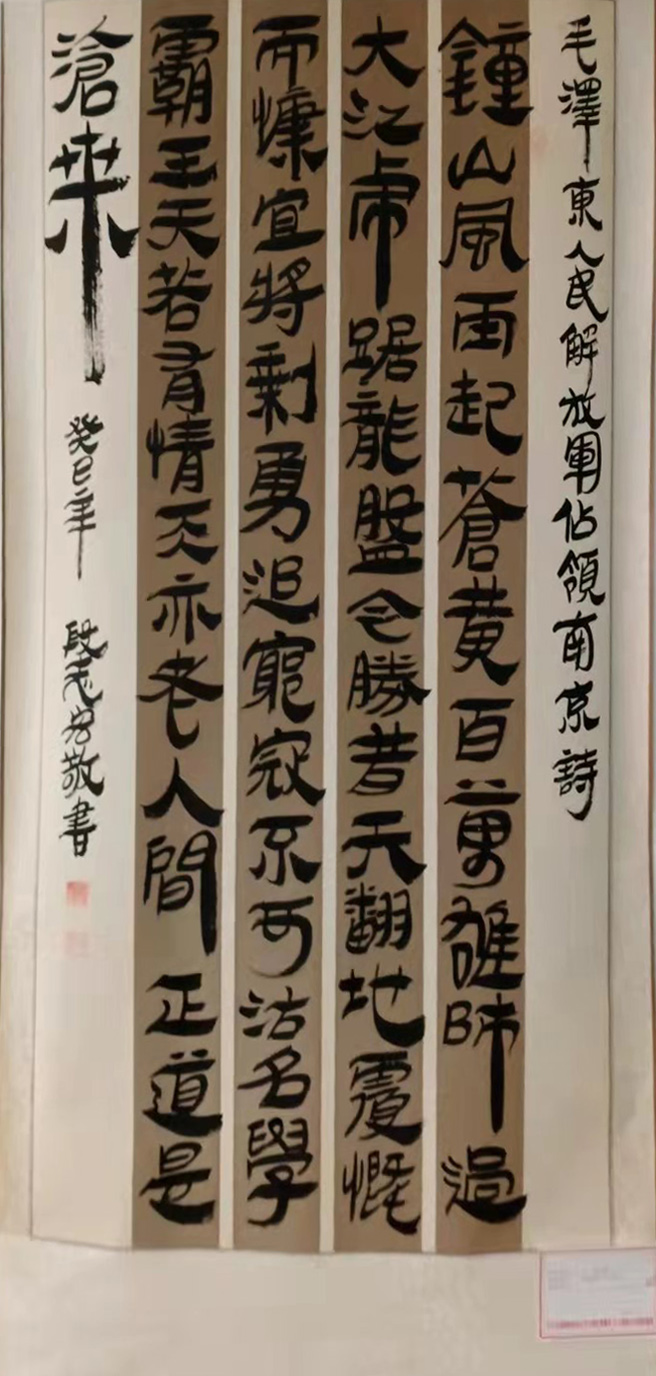 毛澤東人民解放軍佔領南京詩
鐘山風雨起蒼黃百萬雄師過
大江虎踞龍盤今勝昔天翻地覆慨
而慷宜將剩勇追窮寇不可沽名學
霸王天若有情天亦老人間正道是
滄桒
癸巳年 段志敬書